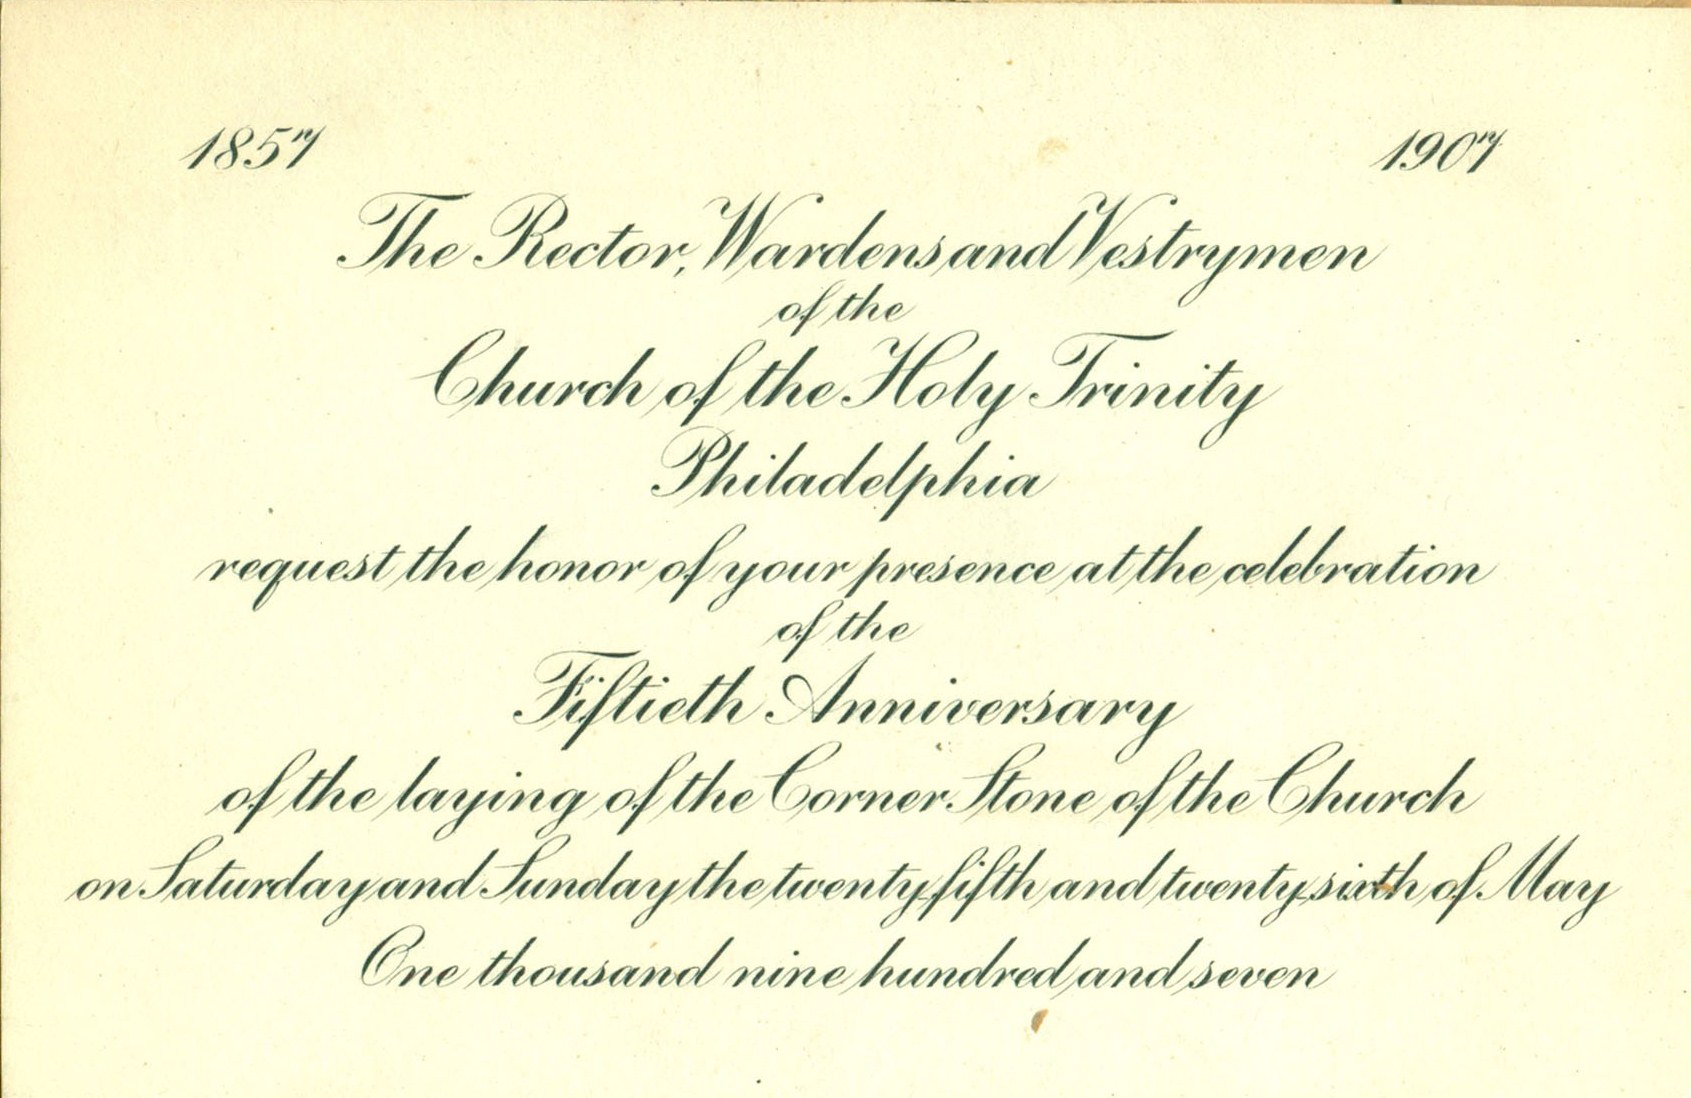 1857 1907
The Rector, Wardens and Vestrymen
of the
Church of the Holy Trinity
Philadelphia
request the honor of your presence at the celebration
of the
Fiftieth Anniversary
of the laying of the Corner Stone of the Church
on Saturday and Sunday the twenty-fifth and twenty-sixth of May
One thousand nine hundred and seven